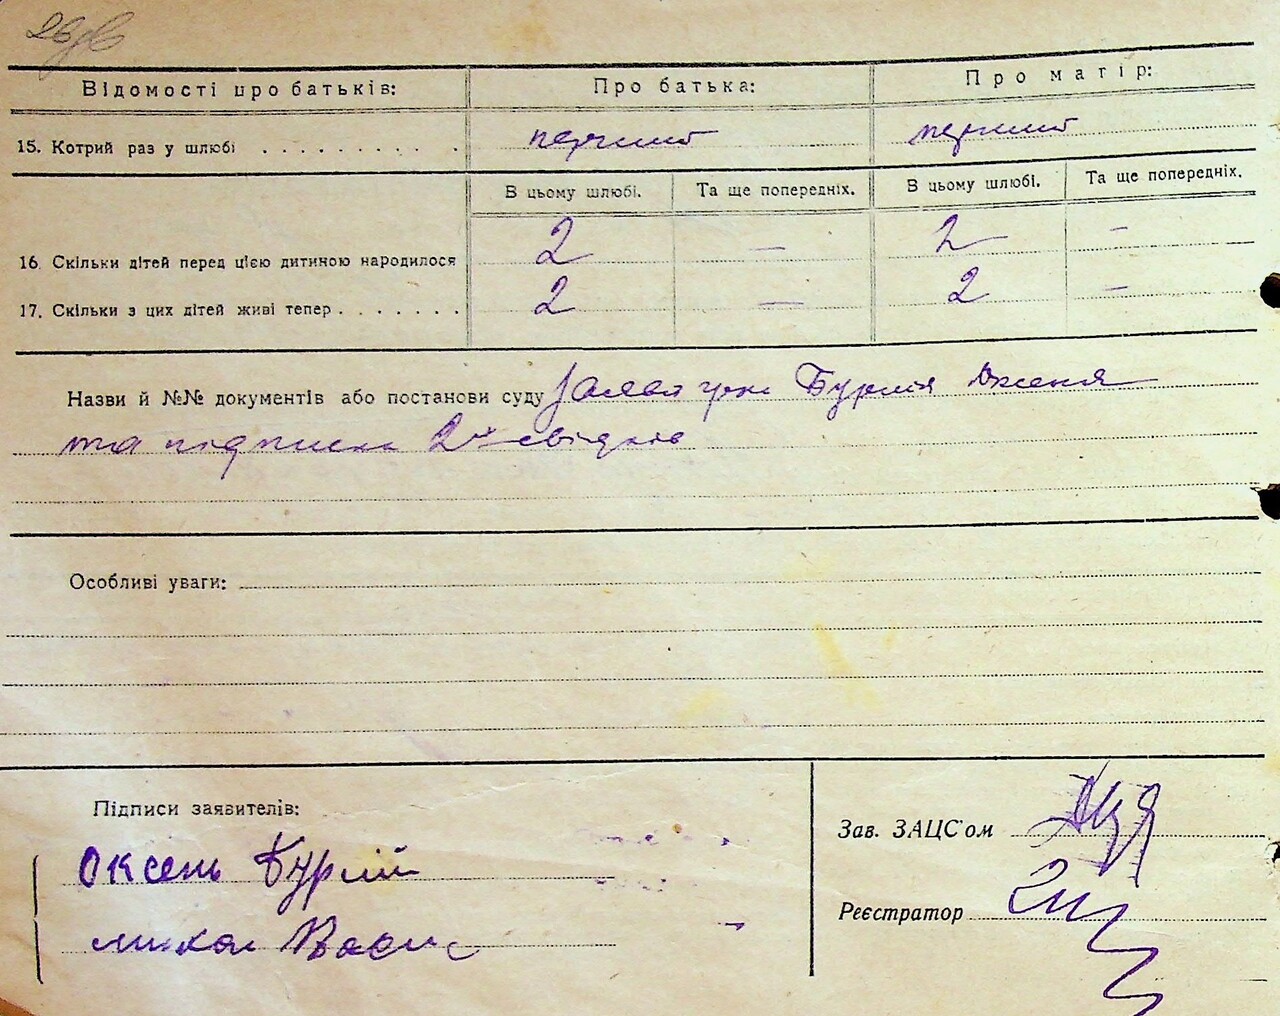 26 зв
Відомості про батьків: Про батька: Про матір:
15. Котрий раз у шлюбі . . . . . . . . . . перший перший
В цьому шлюбі. Та ще попередніх. В цьому шлюбі. Та ще попередніх.
16. Скільки дітей перед цією дитиною народилося 2 — 2 —
17. Скільки з цих дітей живі тепер . . . . . . . 2 — 2 —
Назви й №№ документів або постанови суду Заява гр-на Бурлія Оксеня
та підписка 2х свідків
Особливі уваги:
Підписи заявителів:
Зав. ЗАЦС'ом
Оксень Бурлій
Реєстратор